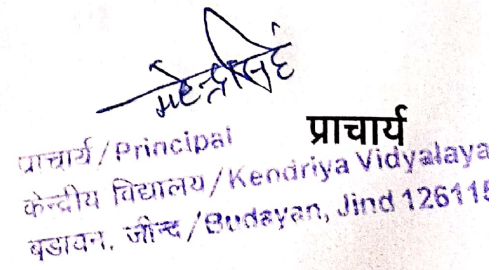 महेन्द्र सिंह
प्राचार्य
प्राचार्य/Principal
केन्द्रीय विद्यालय/Kendriya Vidyalaya
बडावन, जीन्द/Budayan, Jind 126115